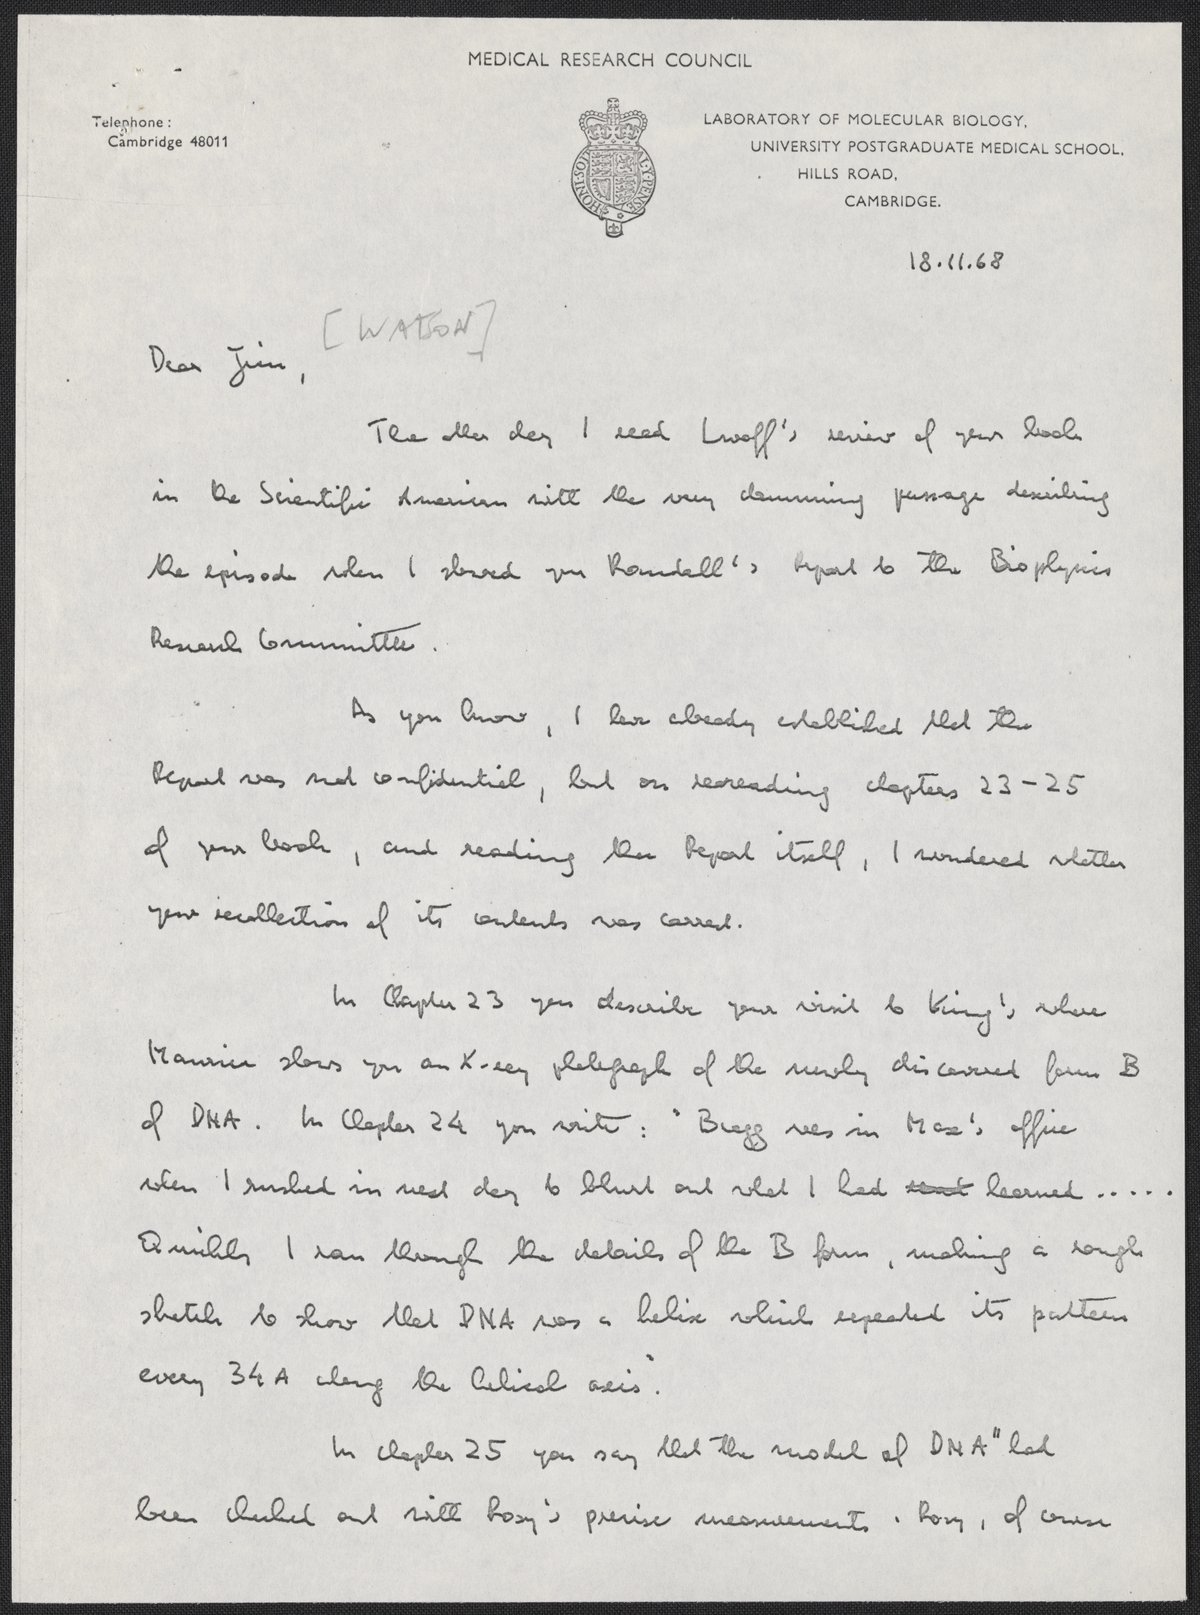 MEDICAL RESEARCH COUNCIL
Telephone:
Cambridge 48011
LABORATORY OF MOLECULAR BIOLOGY,
UNIVERSITY POSTGRADUATE MEDICAL SCHOOL,
HILLS ROAD,
CAMBRIDGE.
HONI·SOIT AL·Y·PENSE
18.11.68
[WATSON]
Dear Jim,
The other day I read Lwoff's review of your book
in the Scientific American with the very damning passage describing
the episode when I showed you Randall's Report to the Biophysics
Research Committee.
As you know, I have already established that the
Report was not confidential, but on rereading chapters 23-25
of your book, and reading the Report itself, I wondered whether
your recollection of its contents was correct.
In Chapter 23 you describe your visit to King's where
Maurice shows you an X-ray photograph of the newly discovered form B
of DNA. In Chapter 24 you write: "Bragg was in Max's office
when I rushed in next day to blurt out what I had read learned.....
Quickly I ran through the details of the B form, making a rough
sketch to show that DNA was a helix which repeated its pattern
every 34 A along the helical axis".
In chapter 25 you say that the model of DNA "had
been checked out with Rosy's precise measurements. Rosy, of course